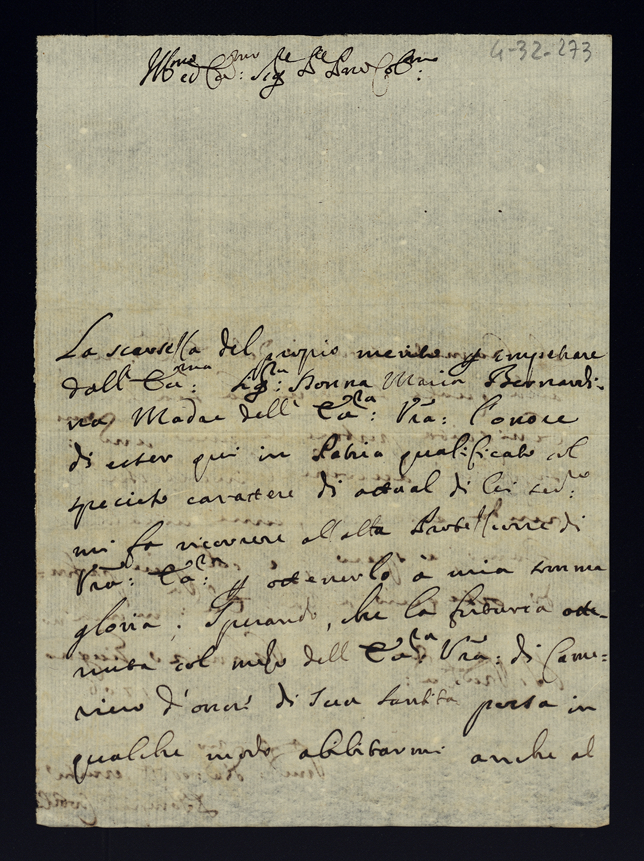 4-32-273
La scarsella del proprio merito p impetrare
dall' Ecc:ma Sig:ra Donna Maria Bernardi-
na Madre dell' Ecc:za Vra: l'onore
di esser qui in Patria qualificato col
specioso carattere di actual di lei
mi fa ricorrere all'alta Protezzione di
Vra: Ecc:za p ottenerlo à mia somma
gloria; Sperando, che la
nuta col mezo dell' Ecc:za Vra: di Came-
riero d'onore di Sua Santità possa in
qualche modo abilitarmi anche al